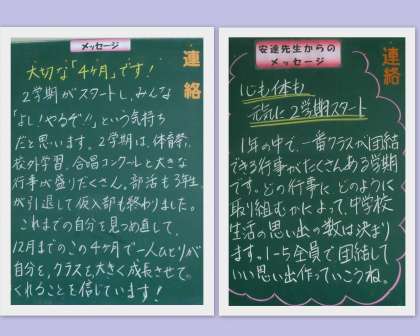 メッセージ
連絡
大切な「4ヶ月」です!
2学期がスタートし、みんな
「よし!やるぞ!!」という気持ち
だと思います。2学期は、体育祭、
校外学習、合唱コンクールと大きな
行事が盛りだくさん。部活も3年生
が引退して仮入部も終わりました。
これまでの自分を見つめ直して、
12月までのこの4ケ月で一人ひとりが
自分を、クラスを、大きく成長させて
くれることを信じています!
安達先生からの
メッセージ
連絡
心も体も
元気に2学期スタート
1年の中で、一番クラスが団結
できる行事がたくさんある学期
です。どの行事に どのように
取り組むかによって、中学校
生活の思い出の数は決まり
ます。1-5全員で団結して
いい思い出作っていこうね。